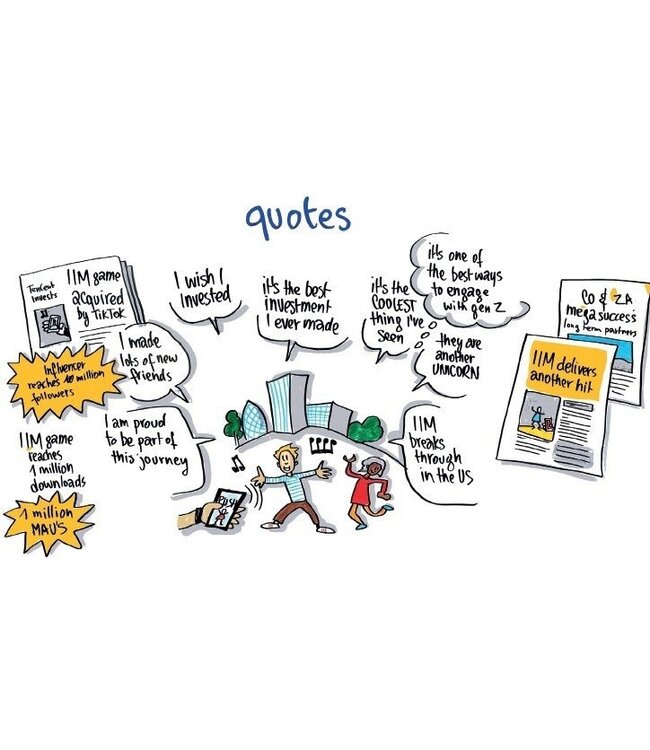 quotes
Tencent
Invests
IIM game
acquired
by TikTok
Influencer
reaches 10 million
followers
IIM game
reaches
1 million
downloads
1 million
MAU'S
I made
lots of new
friends
I am proud
to be part of
this journey
I wish I
Invested
it's the best
investment
I ever made
it's the
COOLEST
thing I've
seen
it's one of
the best ways
to engage
with gen Z
they are
another
UNICORN
IIM
breaks
through
in the US
Co & ZA
mega success
long term partners
IIM delivers
another hit